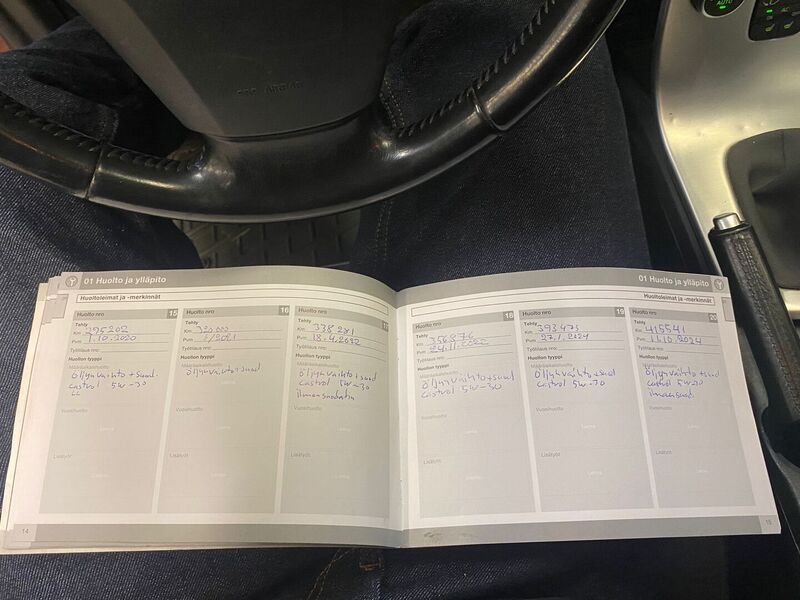 AUTO
AC
01 Huolto ja ylläpito
Huoltoleimat ja -merkinnät
Huolto nro 15
Tehty
Km 295202
Pvm 1.10.2020
Työtilaus nro:
Huollon tyyppi
Määräaikaishuolto
öljynvaihto + suod.
castrol 5w-30
Vuosihuolto
Leima
Lisätyöt
Huolto nro 16
Tehty
Km 320000
Pvm /2021
Työtilaus nro:
Huollon tyyppi
Määräaikaishuolto
öljynvaihto + suod
Vuosihuolto
Leima
Lisätyöt
Huolto nro 17
Tehty
Km 338281
Pvm 18.4.2022
Työtilaus nro:
Huollon tyyppi
Määräaikaishuolto
öljynvaihto + suod
castrol 5w-30
Vuosihuolto
Leima
Lisätyöt
14
01 Huolto ja ylläpito
Huoltoleimat ja -merkinnät
Huolto nro 18
Tehty
Km 356876
Pvm 24.11.2022
Työtilaus nro:
Huollon tyyppi
Määräaikaishuolto
öljynvaihto + suod
castrol 5w-30
Vuosihuolto
Leima
Lisätyöt
Huolto nro 19
Tehty
Km 393473
Pvm 27.1.2024
Työtilaus nro:
Huollon tyyppi
Määräaikaishuolto
öljynvaihto + suod
castrol 5w-30
Vuosihuolto
Leima
Lisätyöt
Huolto nro 20
Tehty
Km 415541
Pvm 11.10.2024
Työtilaus nro:
Huollon tyyppi
Määräaikaishuolto
öljynvaihto + suod
castrol 5w-30
ilmansuod.
Vuosihuolto
Leima
Lisätyöt
15